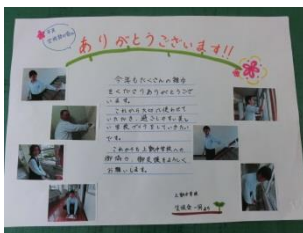 ありがとうございます!!
今年もたくさんの雑巾
をくださりありがとうござ
います。
これから大切に使わせて
いただき、過ごしやすい美し
い学校づくりをしていきたい
です。
これからも上野中学校への
御協力、御支援をよろしく
お願いします。
上野中学校
生徒会一同より